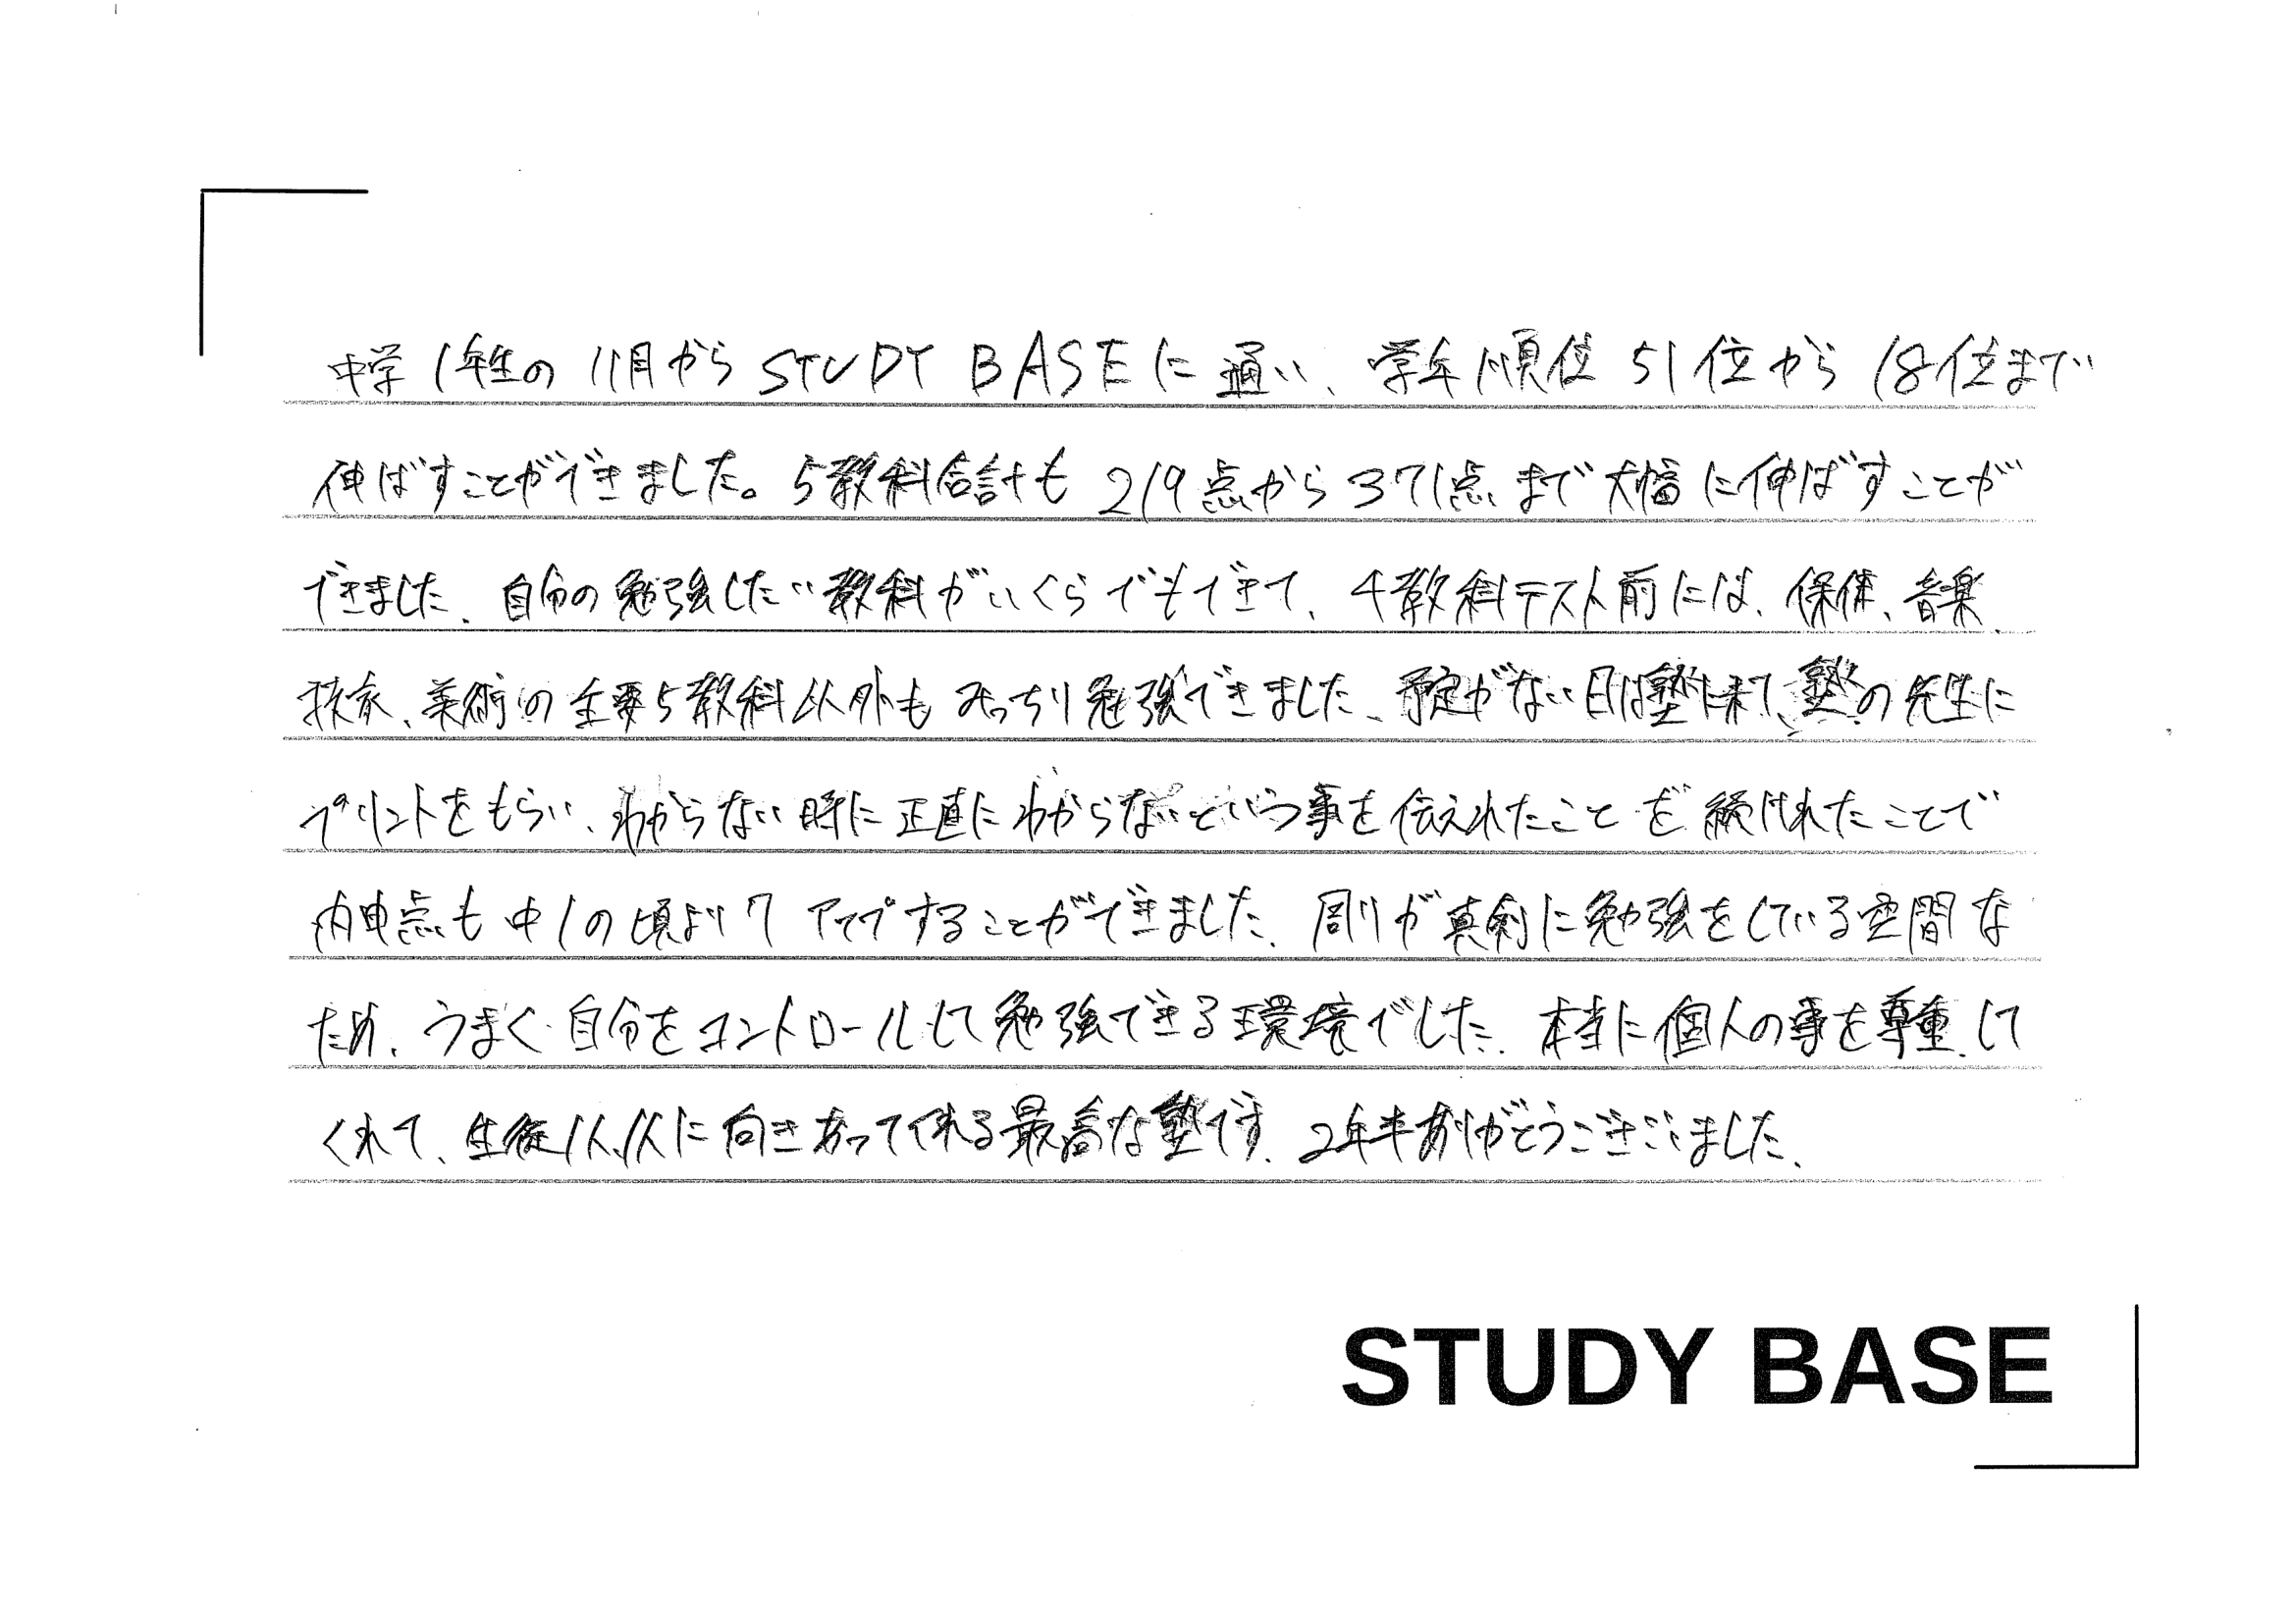 中学1年生の11月からSTUDY BASEに通い、学年順位51位から18位まで
伸ばすことができました。5教科合計も219点から371点まで大幅に伸ばすことが
できました。自分の勉強したい教科がいくらでもできて、4教科テスト前には、保体、音楽、
技家、美術の主要5教科以外もみっちり勉強できました。予定がない日は塾に来て、塾の先生に
プリントをもらい、わからない時に正直にわからないという事を伝えれたことを続けれたことで
内申点も中1の頃より7アップすることができました。周りが真剣に勉強をしている空間な
ため、うまく自分をコントロールして勉強できる環境でした。本当に個人の事を尊重して
くれて、生徒1人1人に向きあってくれる最高な塾です。2年半ありがとうございました。
STUDY BASE